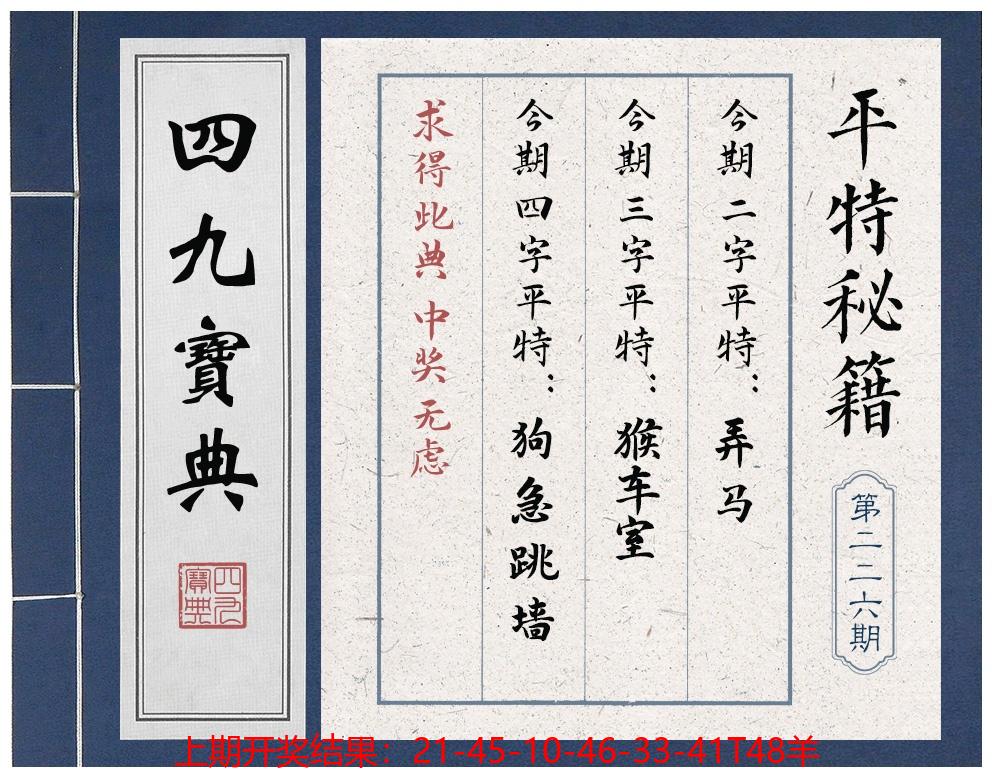 平特秘籍
第二二六期
今期二字平特：弄马
今期三字平特：猴车室
今期四字平特：狗急跳墙
求得此典 中奖无虑
四九寶典
四九寶典
上期开奖结果：21-45-10-46-33-41T48羊